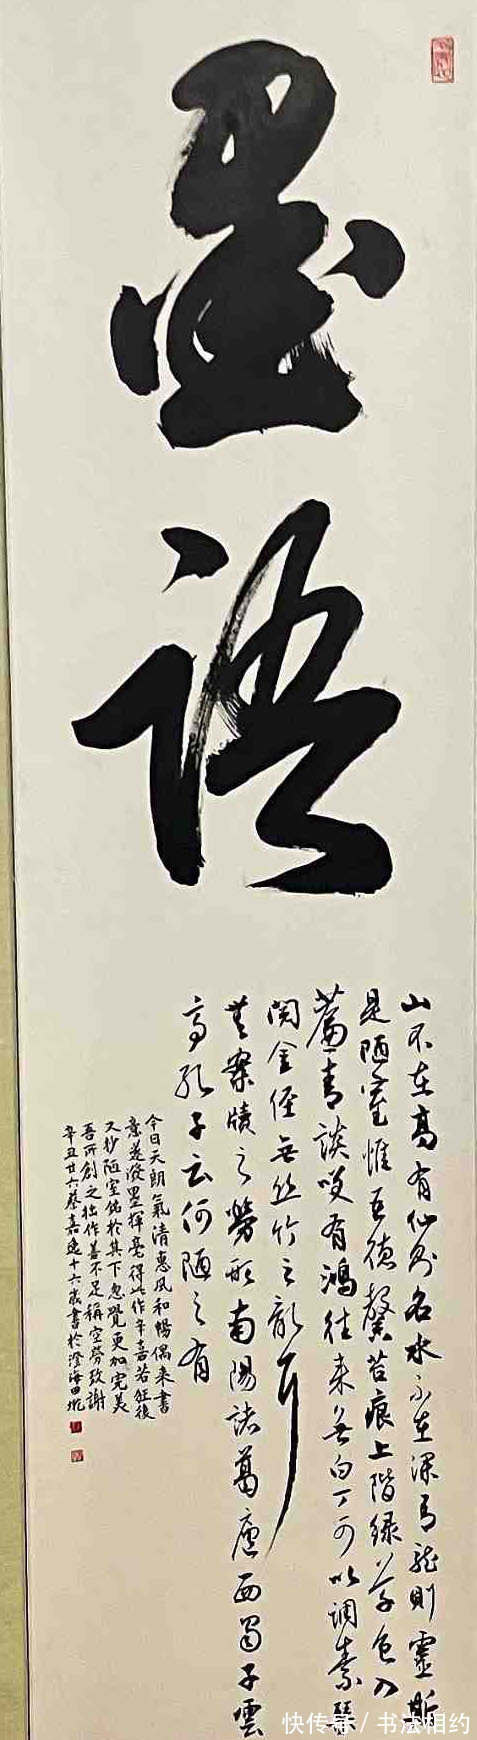 墨語
山不在高有仙則名水不在深有龍則靈斯
是陋室惟吾德馨苔痕上階綠草色入
簾青談笑有鴻往來無白丁可以調素琴
閱金徑無丝竹之亂耳
無案牘之勞形南陽諸葛廬西蜀子雲
亭孔子云何陋之有
今日天朗氣清惠風和暢偶來書
意遂發墨揮毫得此作辛喜若狂後
又抄陋室銘於其下忽覺更加完美
吾所創之拙作善不足稱空勞致謝
辛丑廿六蔡嘉逸十六歲書於澄海田
快传号 / 书法相约